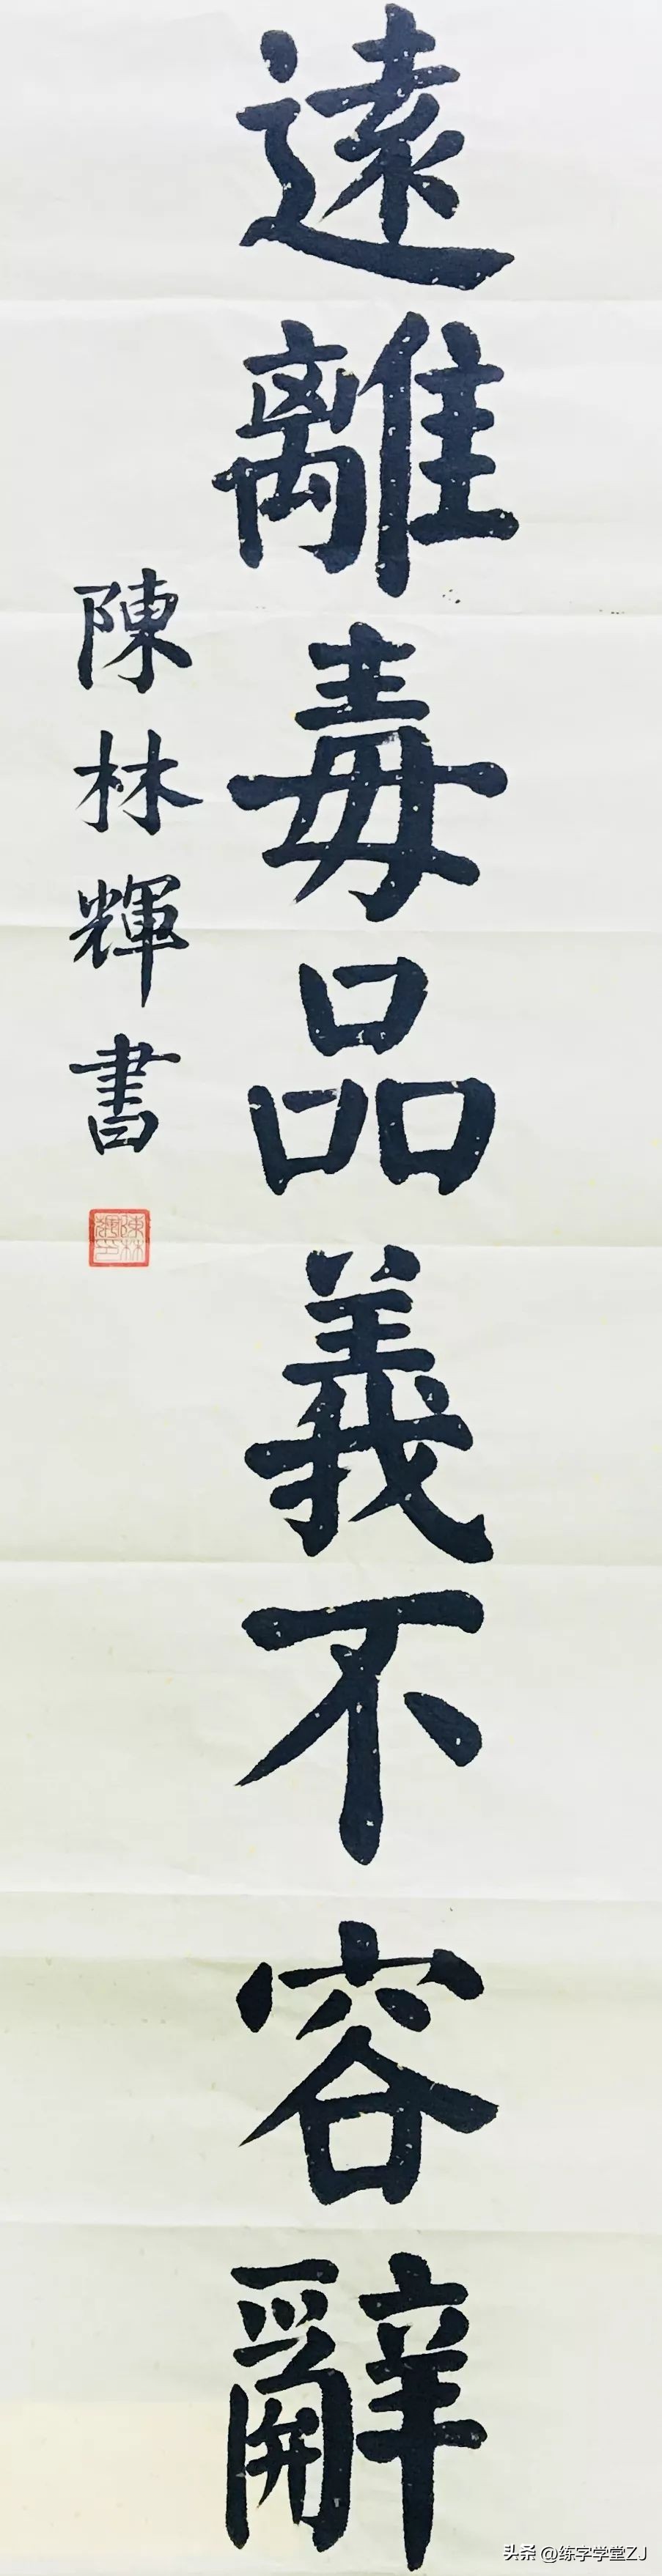 遠離毒品義不容辭
陳林輝書
陳林輝印
头条 @练字学堂ZJ